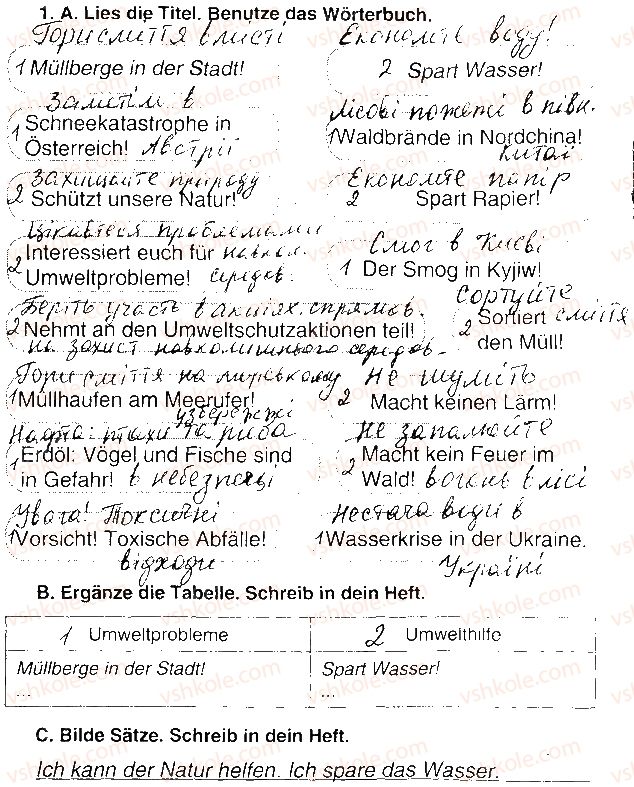 1. A. Lies die Titel. Benutze das Wörterbuch.
Гори сміття в місті Економте воду!
1 Müllberge in der Stadt! 2 Spart Wasser!
Заметіль в Лісові пожежі в півн.
1 Schneekatastrophe in 1 Waldbrände in Nordchina!
Österreich! Австрії Китаї
Захищайте природу Економте папір
2 Schützt unsere Natur! 2 Spart Rapier!
Цікавтеся проблемами
2 Interessiert euch für навкол. Смог в Києві
Umweltprobleme! серед. 1 Der Smog in Kyjiw!
Беріть участь в акціях спрямов. сортуйте
2 Nehmt an den Umweltschutzaktionen teil! 2 Sortiert сміття
на захист навколишнього середов. den Müll!
Гори сміття на морському Не шуміть
1 Müllhaufen am Meerufer! 2 Macht keinen Lärm!
узбережжі
Нафта: птахи та риба Не запалюйте
1 Erdöl: Vögel und Fische sind 2 Macht kein Feuer im
in Gefahr! в небезпеці Wald! вогонь в лісі
Увага! Токсичні Нестача води в
1 Vorsicht! Toxische Abfälle! 1 Wasserkrise in der Ukraine.
відходи Україні
B. Ergänze die Tabelle. Schreib in dein Heft.
1 Umweltprobleme 2 Umwelthilfe
Müllberge in der Stadt! Spart Wasser!
... ...
C. Bilde Sätze. Schreib in dein Heft.
Ich kann der Natur helfen. Ich spare das Wasser.
vshkole.com